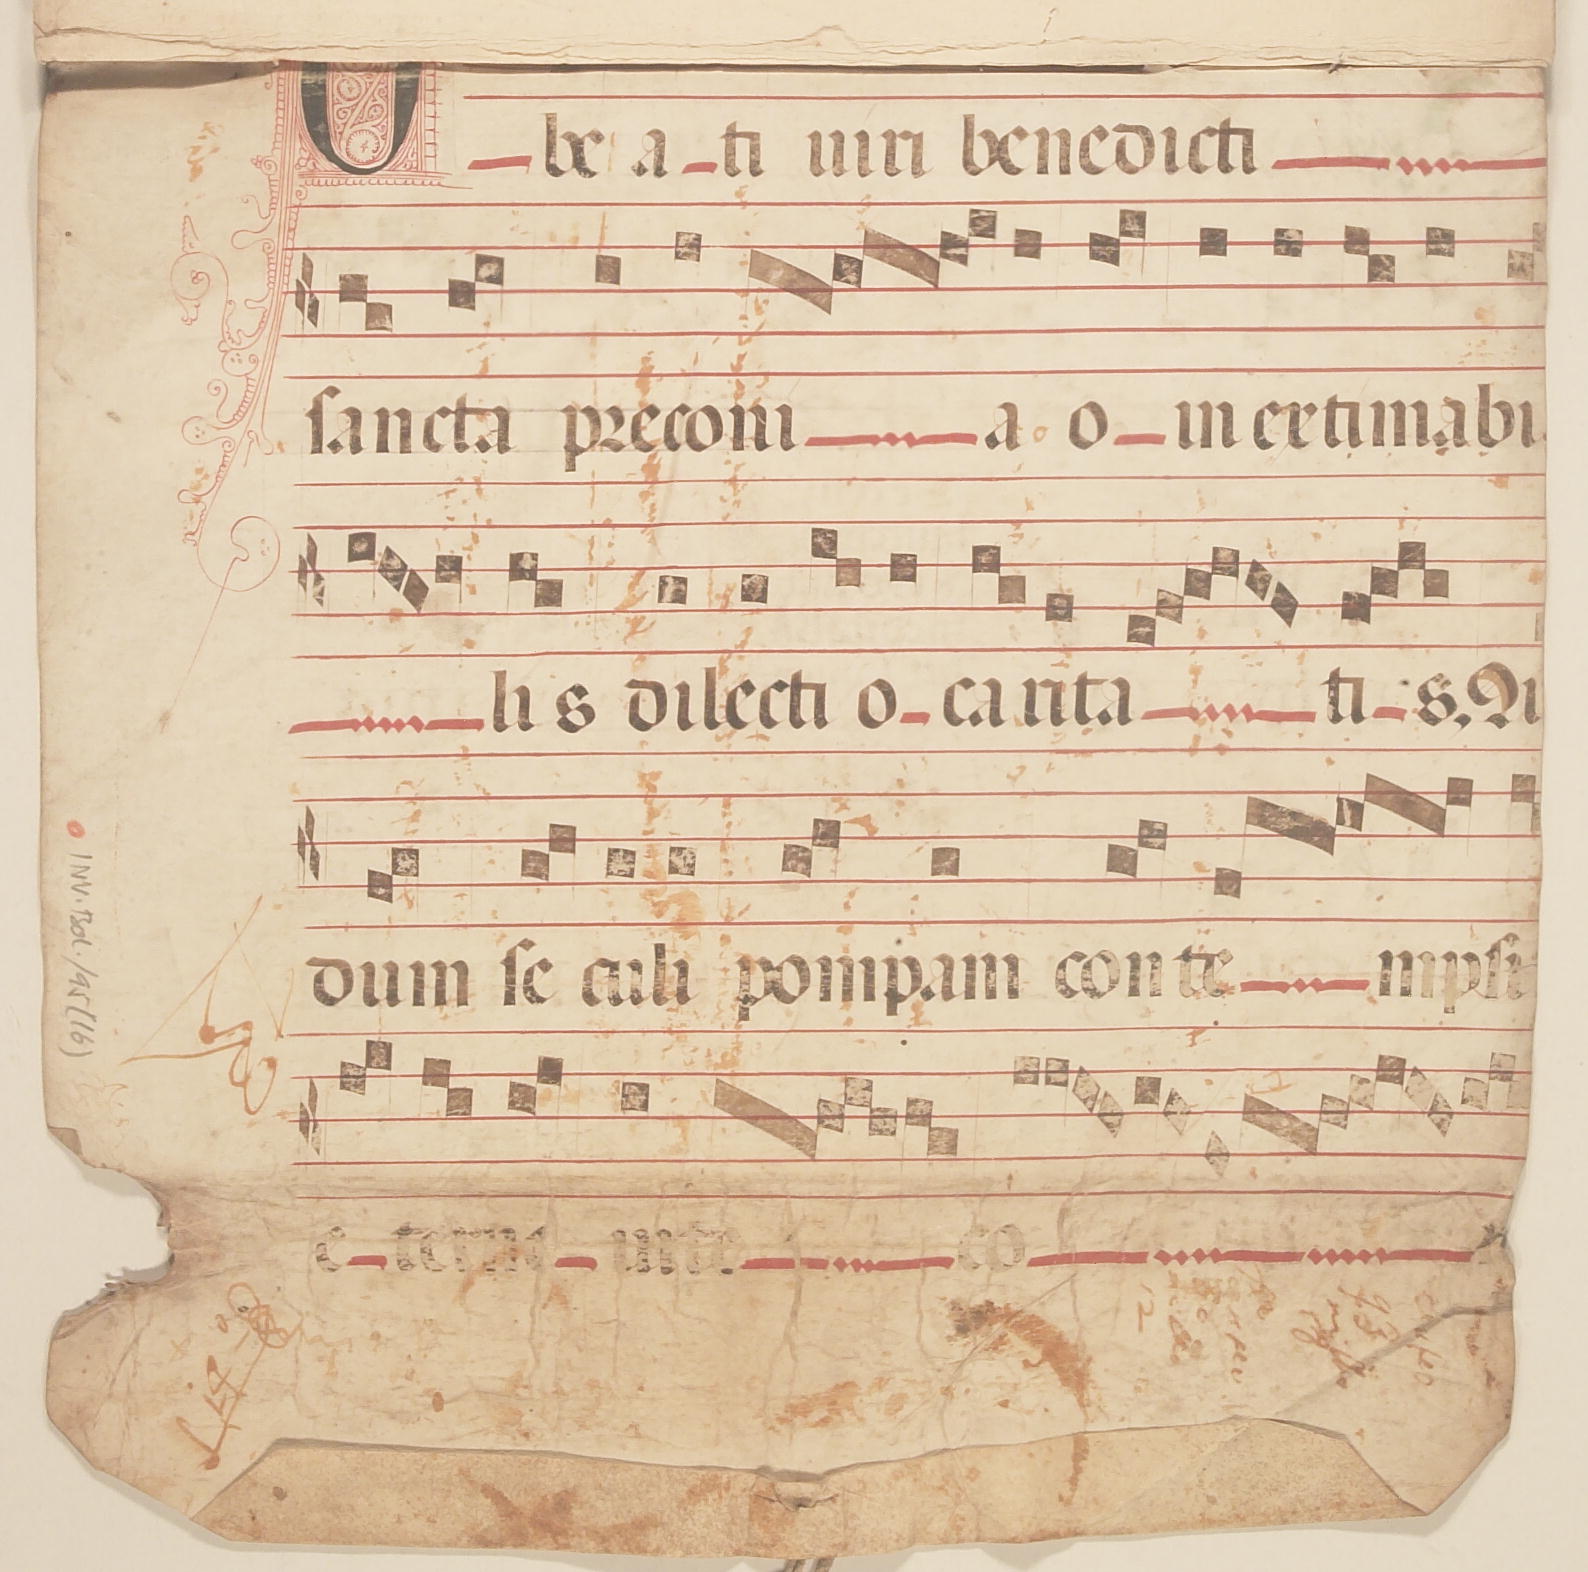 O be a ti uiri benedicti
sancta preconi a o in extimabi
li s dilecti o carita ti s. Qi
dum se culi pompam conte mpsi
e terni uite co
INV. Bd. 195 (16)
12
93